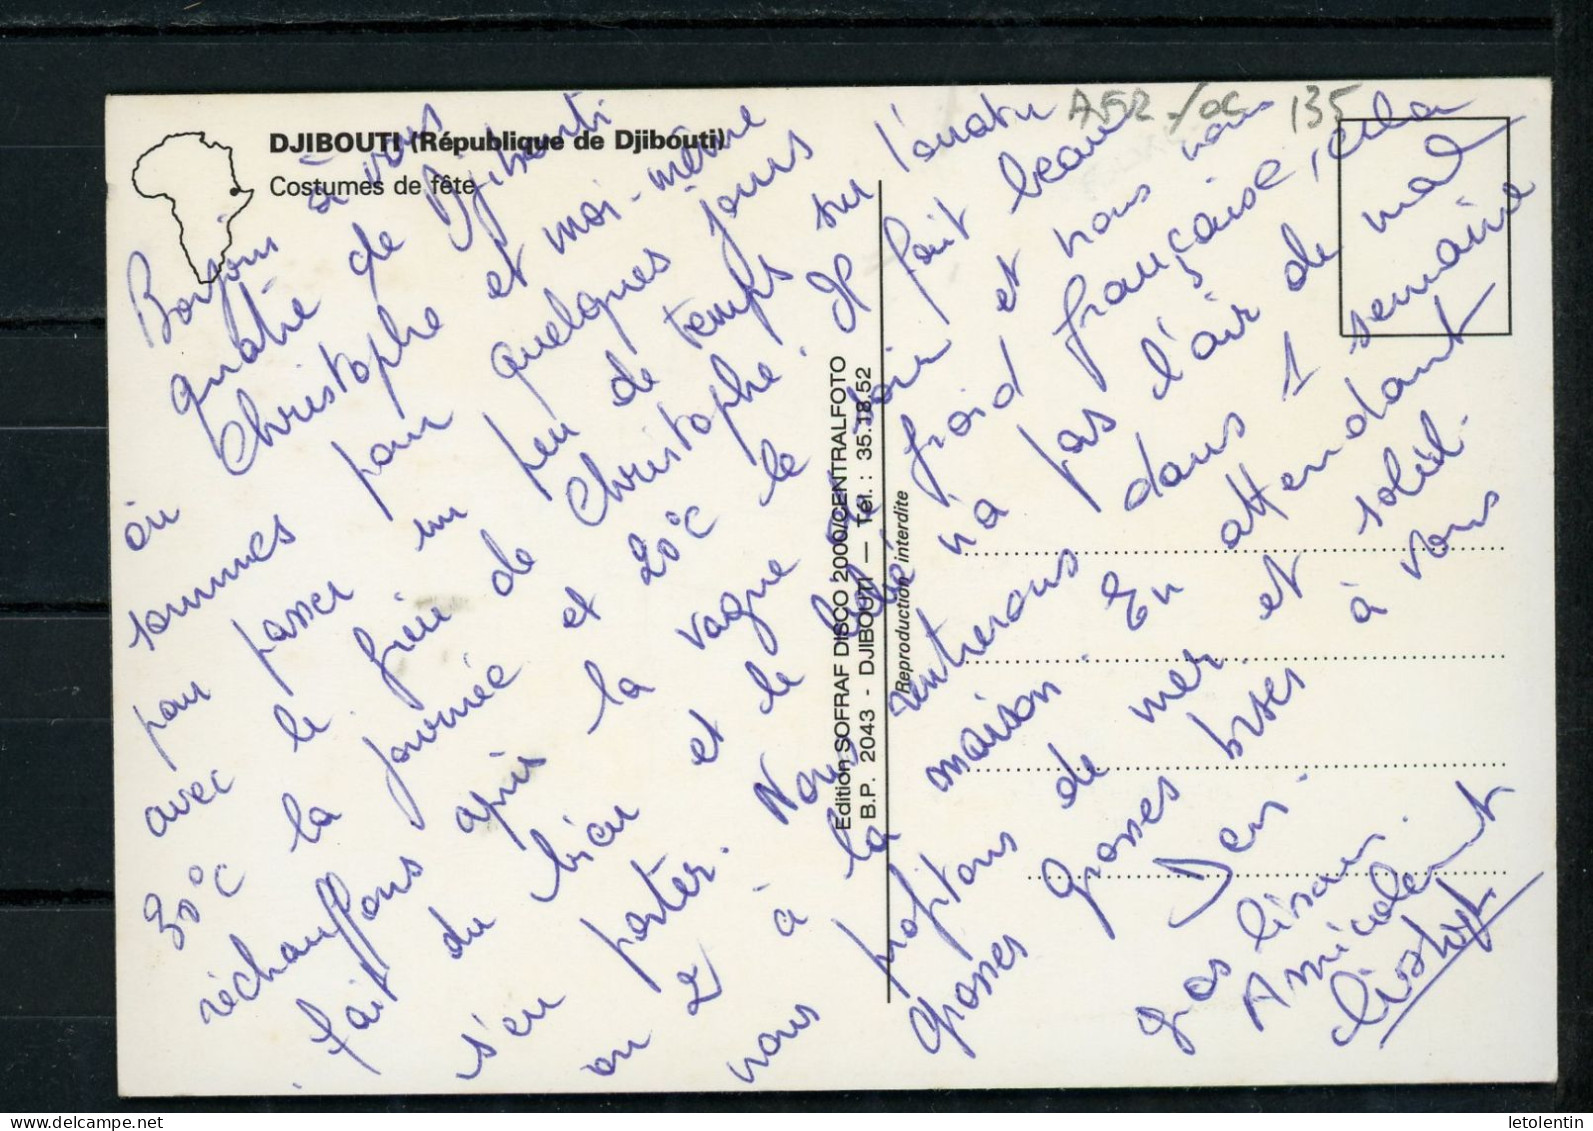 A5R -/oc 135
DJIBOUTI (République de Djibouti)
Costumes de fête
Bonjour à vous
quatre de Djibouti
où Christophe et moi-même
sommes pour quelques jours
pour passer un peu de temps sur l'
avec le frère de Christophe. Il fait beau
30°C la journée et 20°C le soir et nous nous
réchauffons après la vague de froid française, cela
fait du bien et le bébé n'a pas l'air de mal
s'en porter. Nous rentrerons dans 1 semaine
ou 2 à la maison. En attendant
nous profitons de mer et soleil.
Grosses grosses bises à vous
Jen.
gros bisous.
Amicalement
Christophe
Edition SOFRAF DISCO 2000/CENTRALFOTO
B.P. 2043 - DJIBOUTI — Tél. : 35.18.52
Reproduction interdite
letolentin